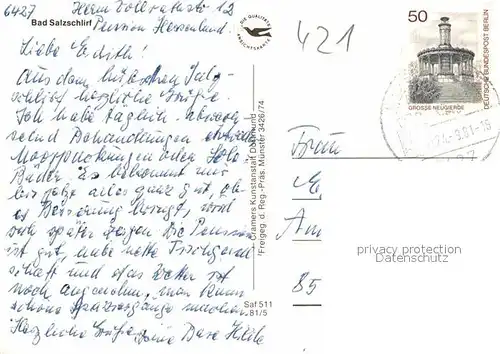 6427
Bad Salzschlirf
Pension Hessenland
Liebe Edith!
Aus dem hübschen Salz-
schlirf herzliche Grüße.
Ich habe täglich abwech
selnd Behandlungen
Moorpackungen oder Sole
Bäder. Es bekommt mir
bis jetzt alles ganz gut, ob
es Besserung bringt, wird
sich später zeigen. Die Pension
ist gut, habe nette Tischgesell
schaft und das Wetter ist
noch angenehm, man kann
schöne Spaziergänge machen.
Herzliche Grüße Deine Base Hilde
DIE QUALITÄTS
ANSICHTSKARTE
Cramers Kunstanstalt Dortmund
Freigeg. d. Reg.-Präs. Münster 3426/74
Saf 511
81/5
421
50
DEUTSCHE BUNDESPOST BERLIN
GROSSE NEUGIERDE
24.-9.81-15
Frau
Am
85
privacy protection
Datenschutz